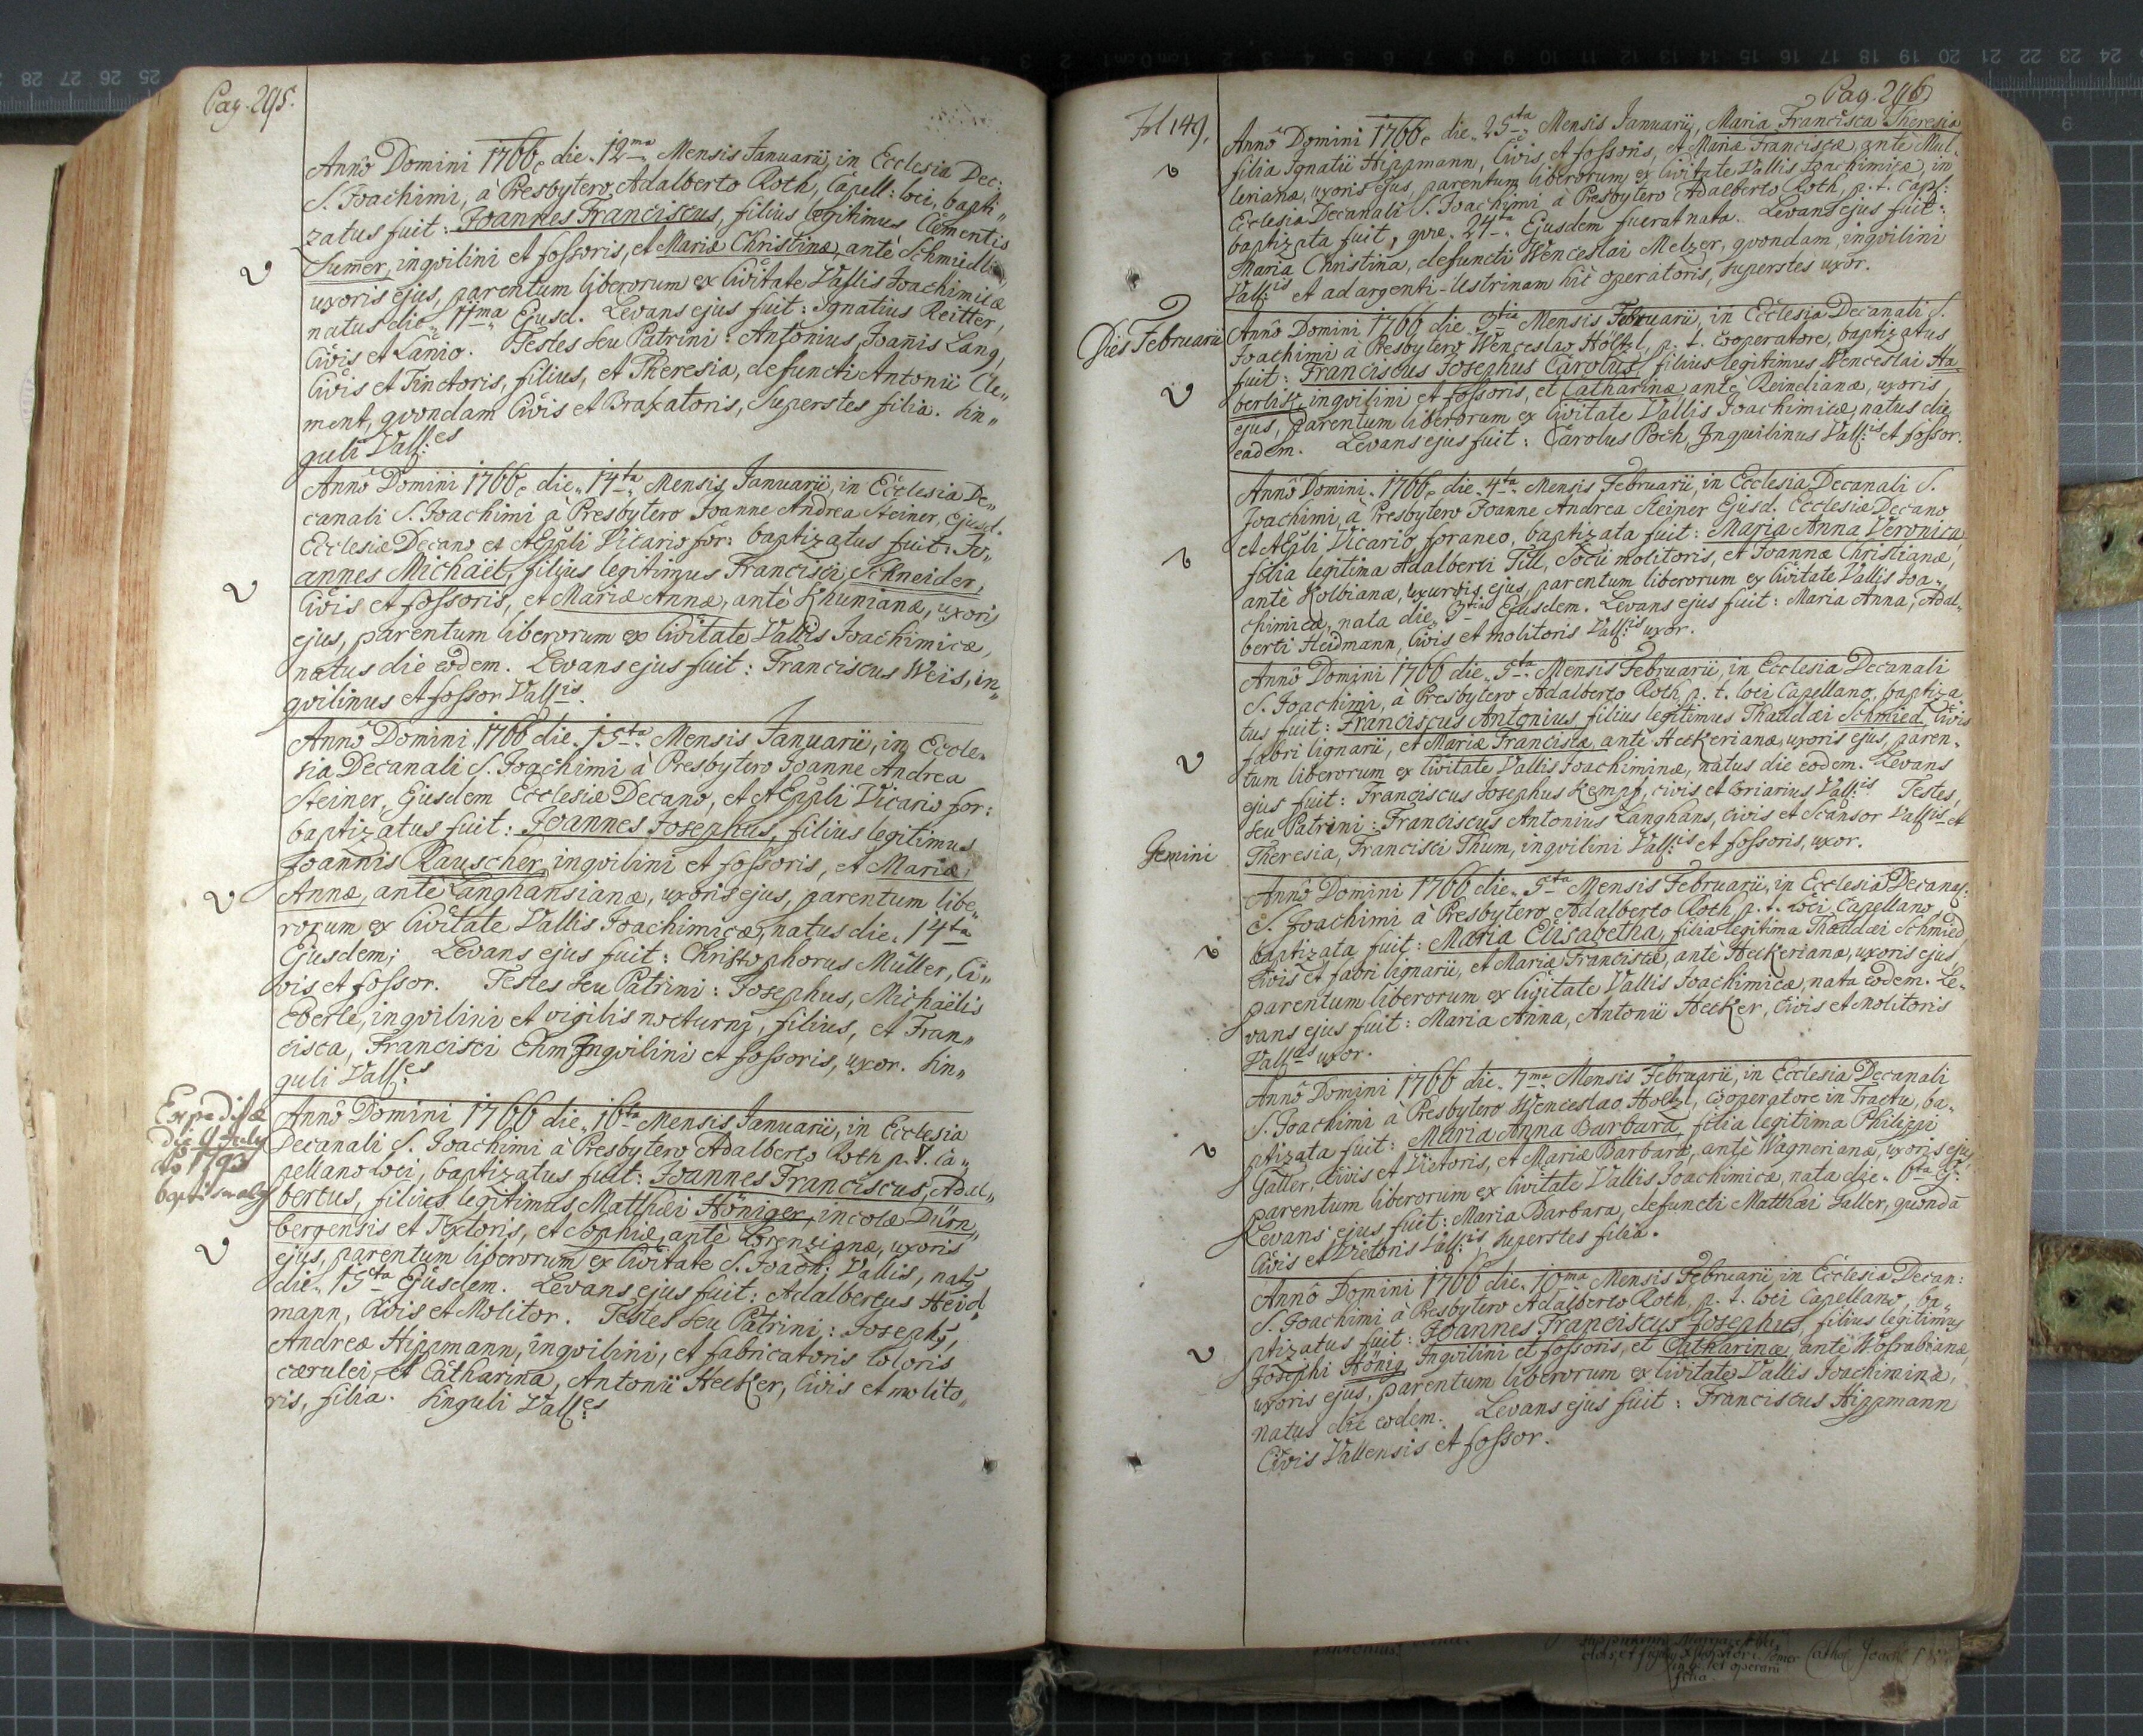 Pag. 295.
Annô Domini 1766, die 12ma Mensis Januarii, in Ecclesia Dec:
S. Joachimi, à Presbytero Adalberto Roth, Capell: loci, bapti„
zatus fuit: Joannes Franciscus, filius legitimus Clementis
Sum̃er, inqvilini et fossoris, et Mariæ Christinæ, antè
uxoris ejus, parentum liberorum ex Civitate Vallis Joachimicæ
natus die 11ma Ejusd. Levans ejus fuit: Ignatius Reitter,
Civis et Lanio. Testes seu Patrini: Antonius, Joan̄is Lang,
Civis et Tinctoris, filius, et Theresia, defuncti Antonii Cle„
ment, qvondam Civis et Braxatoris, Superstes filia. Sin„
guli Vall:es
Annô Domini 1766, die 14ta Mensis Januarii, in Ecclesia De„
canali S. Joachimi à Presbytero Joanne Andrea Steiner, Ejusd.
Ecclesiæ Decano et AEppli Vicario for: baptizatus fuit: Jo„
annes Michaël, filius legitimus Francisci Schneider,
Civis et fossoris, et Mariæ Annæ, antè Khunianæ, uxoris
ejus, parentum liberorum ex Civitate Vallis Joachimicæ,
natus die eodem. Levans ejus fuit: Franciscus Weis, in„
qvilinus et fossor Vall:is
Annô Domini 1766 die 15ta Mensis Januarii, in Eccle„
sia Decanali S. Joachimi à Presbytero Joanne Andrea
Steiner, Ejusdem Ecclesiæ Decano, et AEppli Vicario for:
baptizatus fuit: Joannes Josephus, filius legitimus
Joannis Rauscher, inqvilini et fossoris, et Mariæ
Annæ, antè Langhansianæ, uxoris ejus, parentum libe„
rorum ex Civitate Vallis Joachimicæ, natus die 14ta
Ejusdem; Levans ejus fuit: Christophorus Müller, Ci„
vis et fossor. Testes seu Patrini: Josephus, Michaëlis
Eberle, inqvilini et vigilis nocturni, filius, et Fran„
cisca, Francisci Ehm Inqvilini et fossoris, uxor. Sin„
guli Vall:es
Expeditæ
die
ao 1793
Annô Domini 1766 die 16ta Mensis Januarii, in Ecclesia
Decanali S. Joachimi à Presbytero Adalberto Roth p. t. Ca„
pellano loci, baptizatus fuit: Joannes Franciscus, Adal„
bertus, filius legitimus Matthæi Höniger, incolæ Dürn„
bergensis et Textoris, et Sophiæ, antè Lorenzianæ, uxoris
ejus, parentum liberorum ex Civitate S. Joach: Vallis, natus
die 15ta Ejusdem. Levans ejus fuit: Adalbertus Heid„
mann, Civis et Molitor. Testes seu Patrini: Josephus,
Andreæ Hippmann, inqvilini, et fabricatoris Coloris
cærulei, et Catharina, Antonii Hecker, Civis et molito„
ris, filia. Singuli Vall:es
Fol 149,
Pag. 296
Annô Domini 1766, die 25ta Mensis Januarii, Maria Francisca Theresia
filia Ignatii Hippmann, Civis et fossoris, et Mariæ Franciscæ, antè Mul„
lerianæ, uxoris ejus, parentum liberorum, ex Civitate Vallis Joachimicæ, in
Ecclesia Decanali S. Joachimi à Presbytero Adalberto Roth, p. t. Capl:
baptizata fuit, qvæ 24ta Ejusdem fuerat nata. Levans ejus fuit:
Maria Christina, defuncti Wenceslai Melzer, qvondam, inqvilini
Vall:is et ad argenti-Ustrinam hic operatoris, superstes uxor.
Dies Februarii
Annô Domini 1766 die 3tia Mensis Februarii, in Ecclesia Decanali S.
Joachimi à Presbytero Wenceslao Höltzl, p. t. Cooperatore, baptizatus
fuit: Franciscus Josephus Carolus, filius legitimus Wenceslai Ha„
berlist, inqvilini et fossoris, et Catharinæ, antè Reinelianæ, uxoris
ejus, parentum liberorum ex Civitate Vallis Joachimicæ, natus die
eadem. Levans ejus fuit: Carolus Poch, Inqvilinus Vall:is et fossor.
Annô Domini 1766, die 4ta Mensis Februarii, in Ecclesia Decanali S.
Joachimi, à Presbytero Joanne Andrea Steiner Ejusd. Ecclesiæ Decano
et AEppli Vicario foraneo, baptizata fuit: Maria Anna Veronica,
filia legitima Adalberti Till, Socii molitoris, et Joannæ Christianæ,
antè Kolbianæ, uxuris ejus, parentum liberorum ex Civitate Vallis Joa„
chimicæ, nata die 3tia Ejusdem. Levans ejus fuit: Maria Anna, Adal„
berti Heidmann, Civis et molitoris Vall:is uxor.
Annô Domini 1766 die 5ta Mensis Februarii, in Ecclesia Decanali
S. Joachimi, à Presbytero Adalberto Roth p. t. loci Capellano, baptiza„
tus fuit: Franciscus Antonius, filius legitimus Thaddæi Schmied, Civis
fabri lignarii, et Mariæ Franciscæ, antè Heckerianæ, uxoris ejus, paren„
tum liberorum ex Civitate Vallis Joachiminæ, natus die eodem. Levans
ejus fuit: Franciscus Josephus Kempf, civis et Coriarius Vall:is Testes,
seu Patrini: Franciscus Antonius Langhans, Civis et Scansor Vall:is et
Theresia, Francisci Thum, inqvilini Vall:is et fossoris, uxor.
Gemini
Annô Domini 1766 die 5ta Mensis Februarii, in Ecclesia Decanal:
S. Joachimi à Presbytero Adalberto Roth, p. t. loci Capellano,
baptizata fuit: Maria Elisabetha, filia legitima Thaddæi Schmied,
Civis et fabri lignarii, et Mariæ Franciscæ, antè Heckerianæ, uxoris ejus,
parentum liberorum ex Civitate Vallis Joachimicæ, nata eodem. Le„
vans ejus fuit: Maria Anna, Antonii Hecker, Civis et Molitoris
Vall:is uxor.
Annô Domini 1766 die 7ma Mensis Februarii, in Ecclesia Decanali
S. Joachimi à Presbytero Wenceslao Holtzl, Cooperatore in Tractu, ba„
ptizata fuit: Maria Anna Barbara, filia legitima Philippi
Galler, Civis et Vietoris, et Mariæ Barbaræ, antè Wagnerianæ, uxoris ejus,
parentum liberorum ex Civitate Vallis Joachimicæ, nata die 6ta Ej:
Levans ejus fuit: Maria Barbara, defuncti Matthæi Galler, quondã
Civis et Vietoris Vall:is superstes filia.
Annô Domini 1766 die 10ma Mensis Februarii, in Ecclesia Decan:
S. Joachimi à Presbytero Adalberto Roth, p. t. loci Capellano, ba„
ptizatus fuit: Joannes Franciscus Josephus, filius legitimus
Josephi Hönig, Inqvilini et fossoris, et Catharinæ, antè Wohrabianæ,
uxoris ejus, parentum liberorum ex Civitate Vallis Joachiminæ,
natus die eodem. Levans ejus fuit: Franciscus Hippmann
Civis Vallensis et fossor.